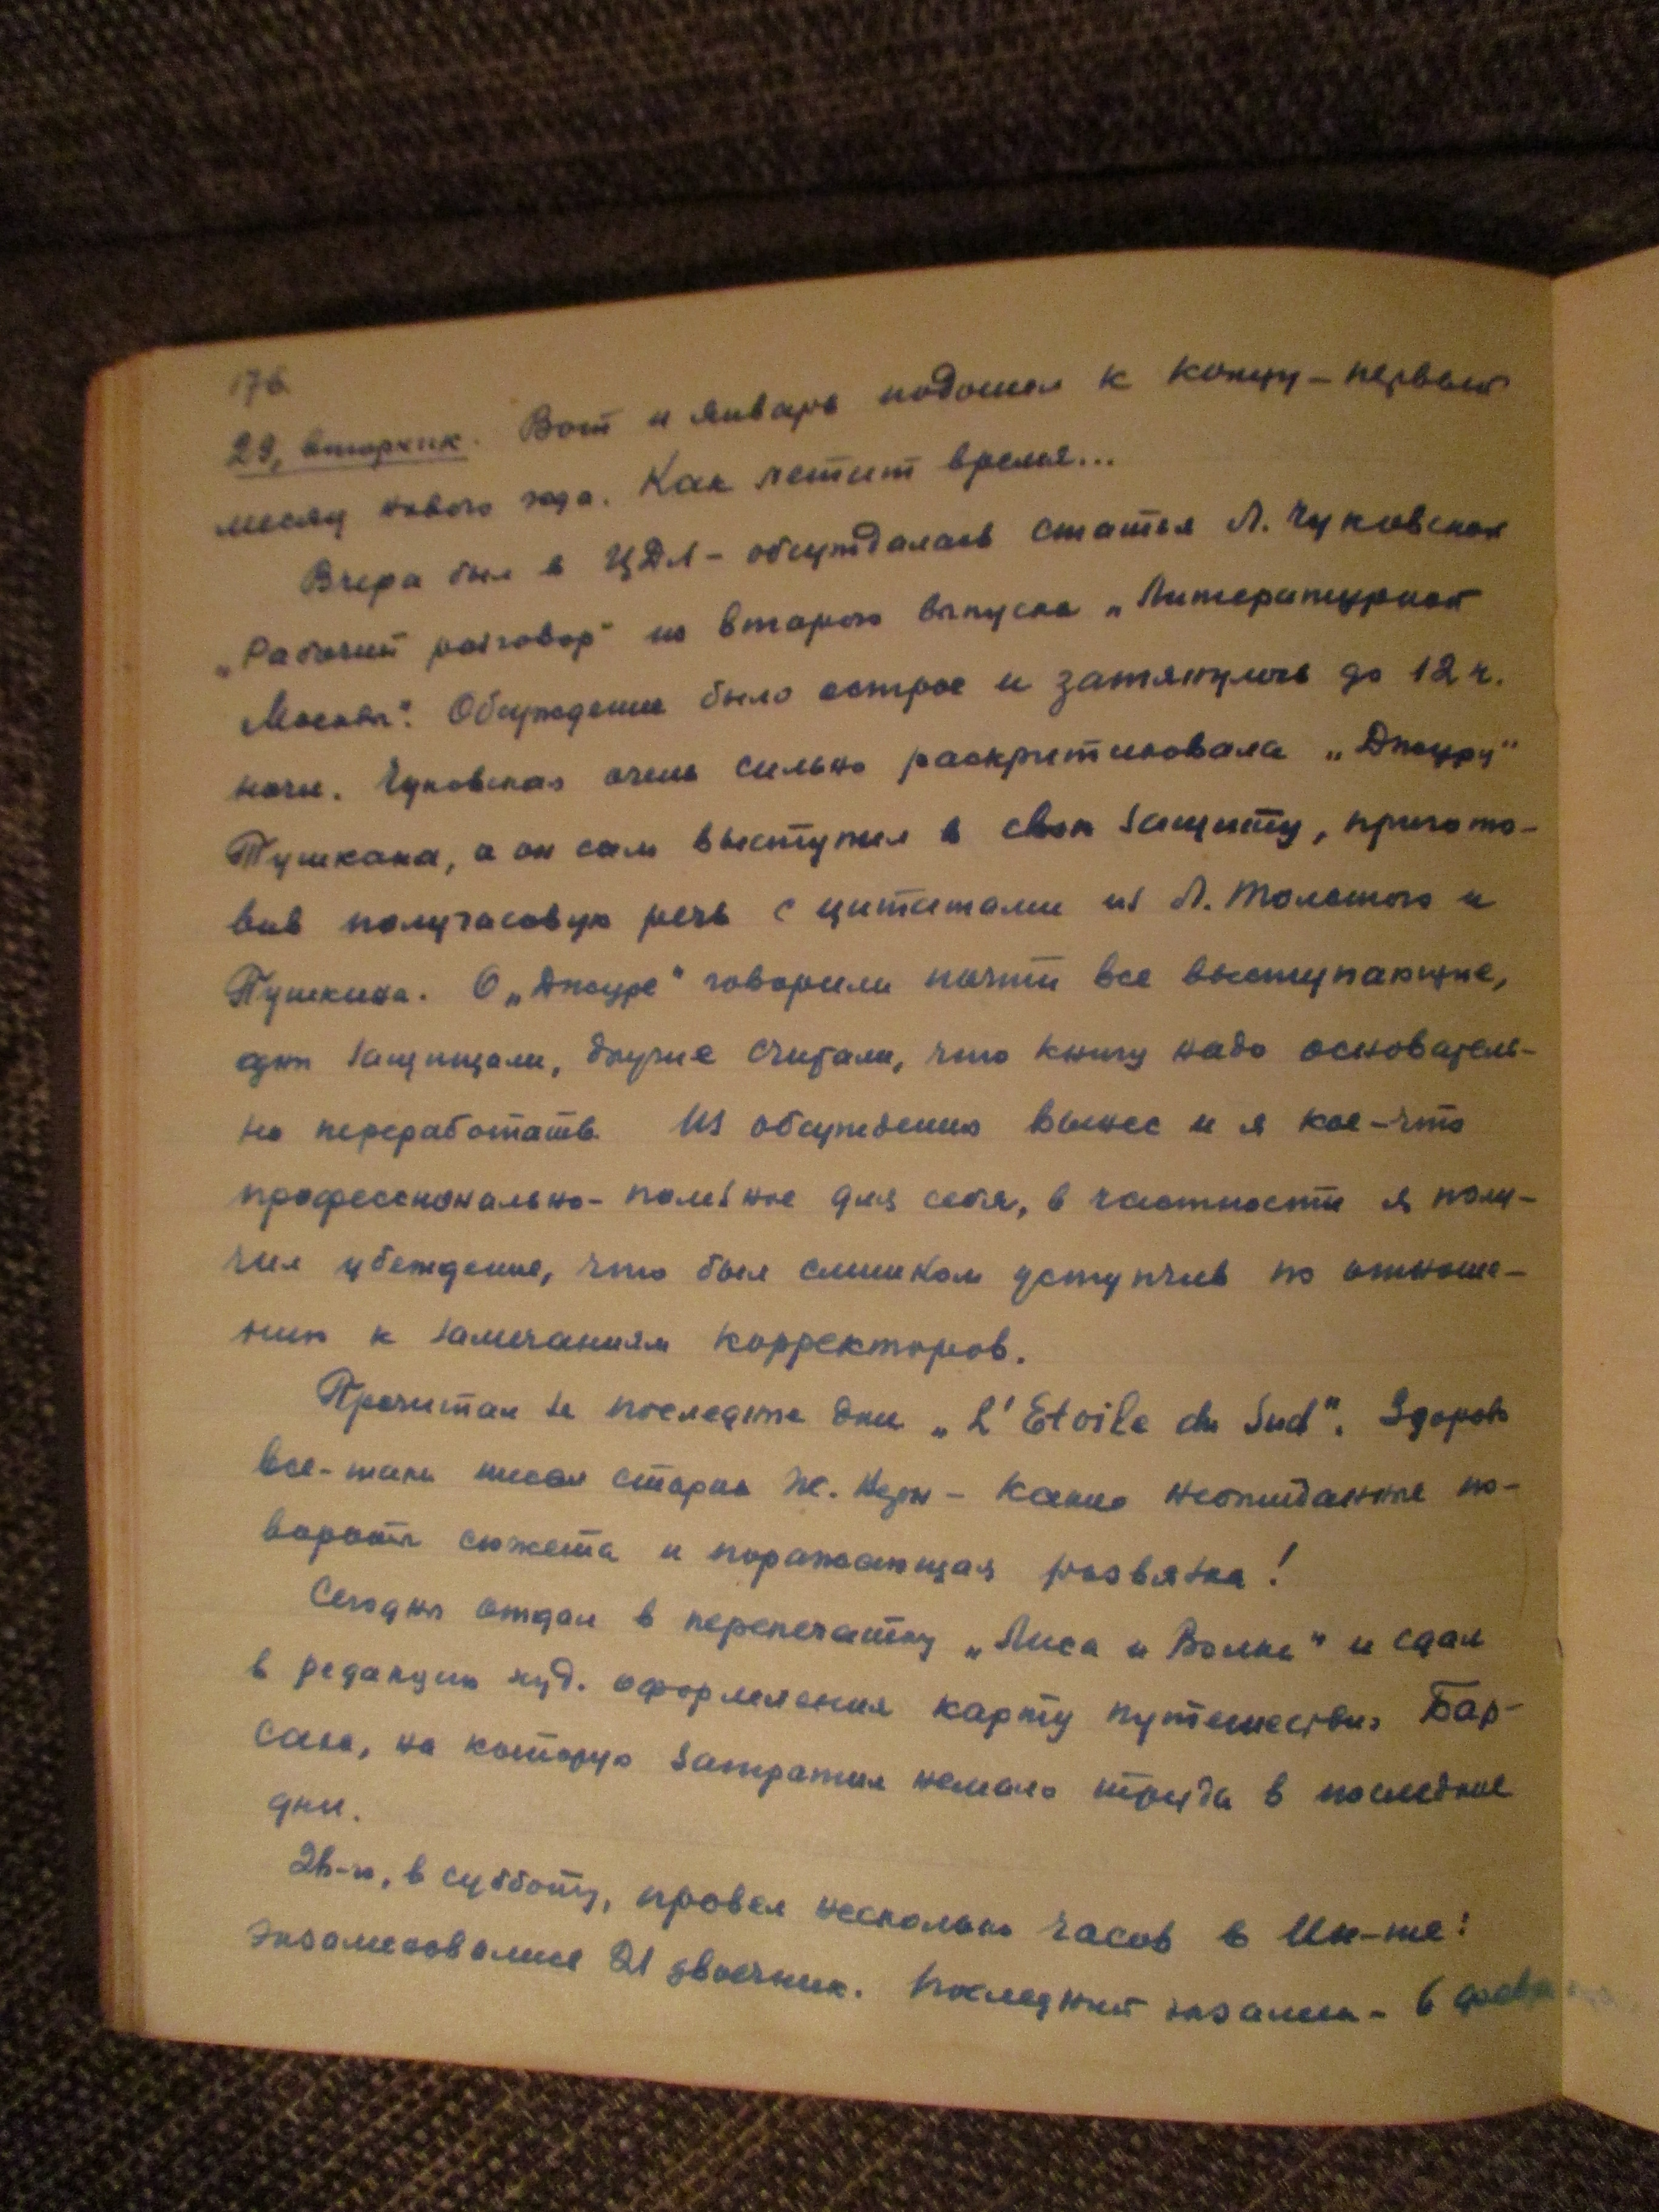 176.
29, вторник. Вот и январь подошел к концу – первый
месяц нового года. Как летит время...
Вчера был в ЦДЛ – обсуждалась статья Л. Чуковской
„Рабочий разговор" из второго выпуска „Литературной
Москвы". Обсуждение было острое и затянулось до 12 ч.
ночи. Чуковская очень сильно раскритиковала „Джуру"
Тушкана, а он сам выступил в свою защиту, пригото-
вив получасовую речь с цитатами из Л. Толстого и
Пушкина. О „Джуре" говорили почти все выступающие,
одни защищали, другие считали, что книгу надо основатель-
но переработать. Из обсуждения вынес и я кое-что
профессионально-полезное для себя, в частности я полу-
чил убеждение, что был слишком уступчив по отноше-
нию к замечаниям корректоров.
Прочитал за последние дни „L'Etoile du Sud". Здорово
все-таки писал старик Ж. Верн – какие неожиданные по-
вороты сюжета и поражающая развязка!
Сегодня отдал в перепечатку „Лиса и Волка" и сдал
в редакцию худ. оформления карту путешествия Бар-
сака, на которую затратил немало труда в последние
дни.
26-го, в субботу, провел несколько часов в Ин-те:
экзаменовался 21 двоечник. Последний экзамен – 6 февра